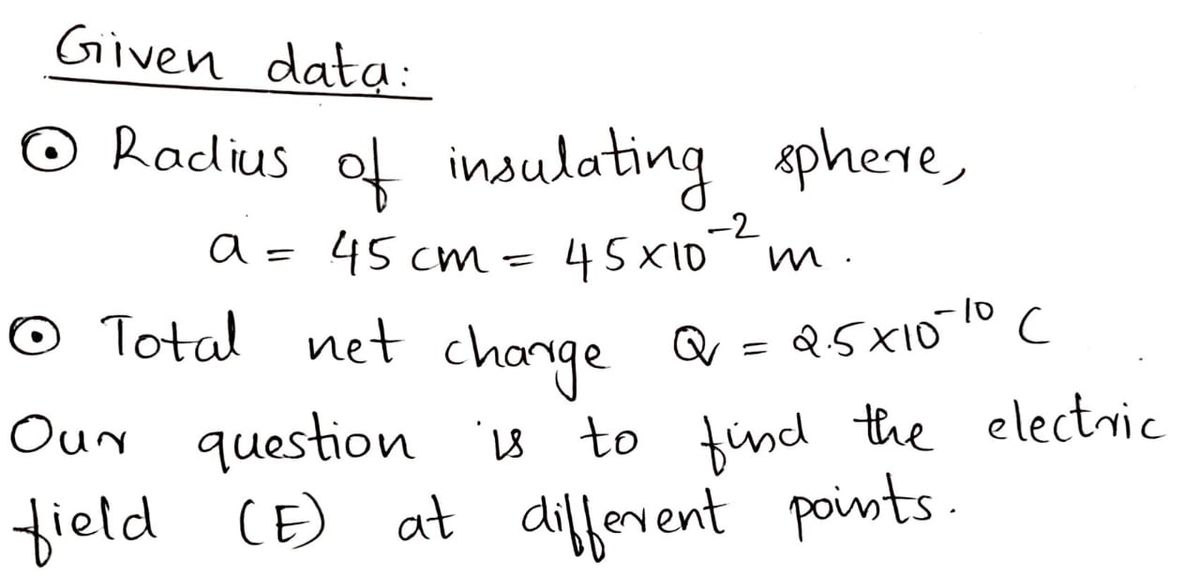 Given data:
⊙ Radius of insulating sphere,
a = 45 cm = 45×10⁻² m.
⊙ Total net charge Q = 2.5×10⁻¹⁰ C
Our question is to find the electric
field (E) at different points.